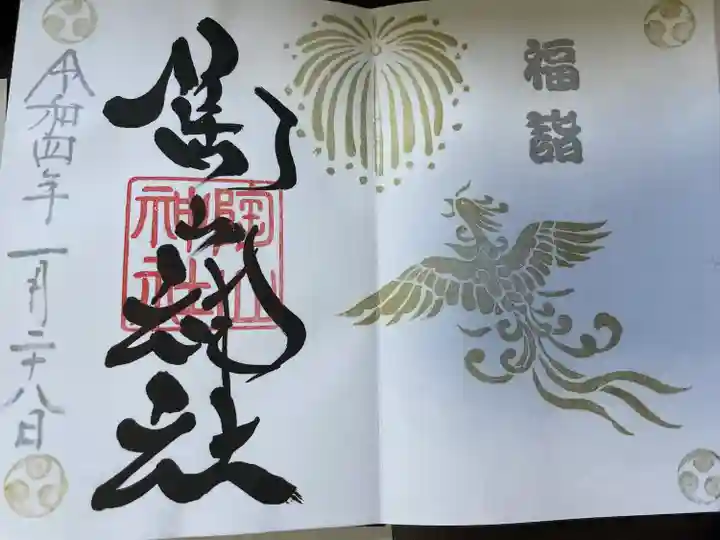 福詣
陶山神社
陶山神社
令和四年一月二十八日